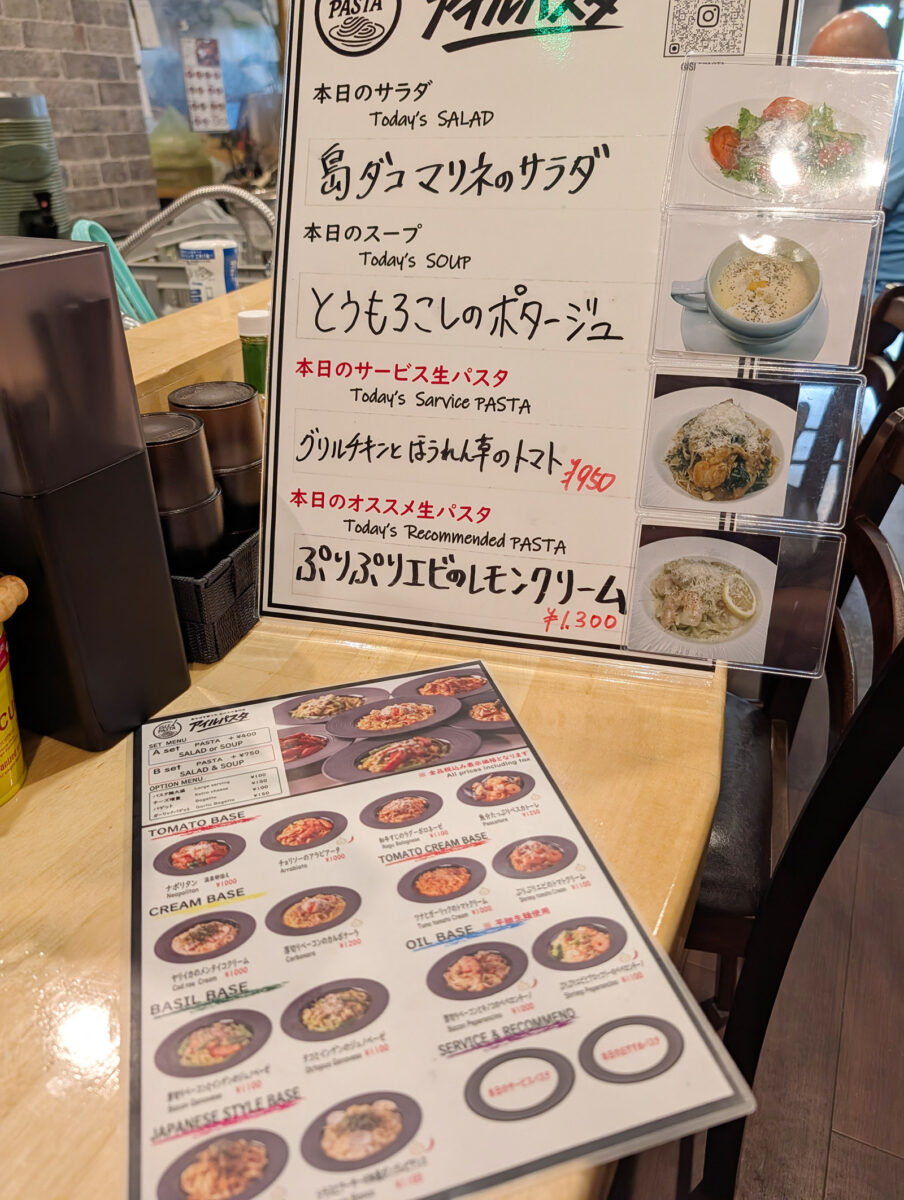 PASTA
アイルパスタ
本日のサラダ
Today's SALAD
島ダコマリネのサラダ
本日のスープ
Today's SOUP
とうもろこしのポタージュ
本日のサービス生パスタ
Today's Sarvice PASTA
グリルチキンとほうれん草のトマト ¥950
本日のオススメ生パスタ
Today's Recommended PASTA
ぷりぷりエビのレモンクリーム
¥1,300
PASTA
アイルパスタ
SET MENU
A set PASTA +¥400
SALAD or SOUP
B set PASTA +¥750
SALAD & SOUP
OPTION MENU
パスタ麺大盛 Large serving ¥100
チーズ増量 Extra cheese
バゲット
ガーリックバゲット
※全品税込み表示価格となります
All prices including tax
TOMATO BASE
ナポリタン 温泉卵添え
Neapolitan ¥1000
チョリソーのアラビアータ
Arrabiata ¥1000
和牛すじのラグーボロネーゼ
Ragu Bolognese ¥1100
魚介たっぷりペスカトーレ
Pescatora ¥1250
TOMATO CREAM BASE
ツナとガーリックのトマトクリーム
Tuna tomato Cream ¥1000
ぷりぷりエビのトマトクリーム
Shrimp tomato Cream ¥1100
CREAM BASE
ヤリイカのメンタイコクリーム
Cod roe Cream ¥1000
厚切りベーコンのカルボナーラ
Carbonara ¥1200
OIL BASE ※平打生麺使用
厚切りベーコンとキノコのペペロンチーノ
Bacon Peperoncino ¥1000
Shrimp Peperoncino ¥1100
BASIL BASE
厚切りベーコンとインゲンのジェノベーゼ
Bacon Genovese ¥1100
タコとインゲンのジェノベーゼ
Octopus Genovese ¥1100
SERVICE & RECOMMEND
本日のサービスパスタ
本日のおすすめパスタ
JAPANESE STYLE BASE